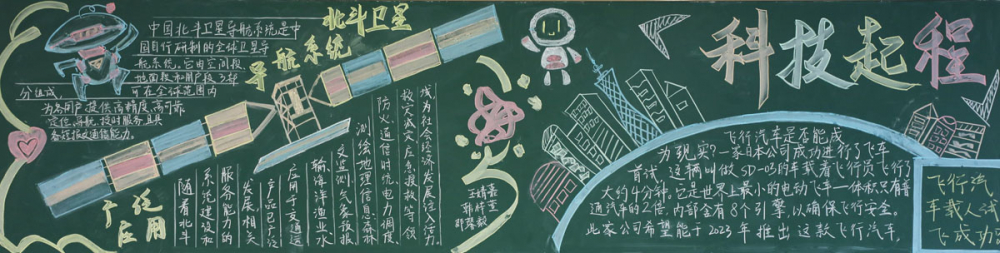 北斗卫星
导航系统
中国北斗卫星导航系统是中
国自行研制的全球卫星导
航系统。它由空间段、
地面段和用户段3部
分组成,
可在全球范围内
为各用户提供高精度、高可靠
定位、导航、授时服务,且具
备短报文通信能力。
广泛
应用
随着北斗
系统建设和
服务能力的
发展,相关
产品已广泛
应用于交通运
输、海洋渔业、水
文监测、气象预报
测绘地理信息、森林
防火、通信时统、电力调度、
救灾减灾、应急搜救等领
域,为社会经济发展注入活力。
科技起程
飞行汽车是否能成
为现实?一家日本公司成功进行了飞车
首试。这辆叫做SD-03的车载着飞行员飞行了
大约4分钟。它是世界上最小的电动飞车一体积只有普
通汽车的2倍,内部含有8个引擎,以确保飞行安全。
此家公司希望能于2023年推出这款飞行汽车。
飞行汽
车载人试
飞成功